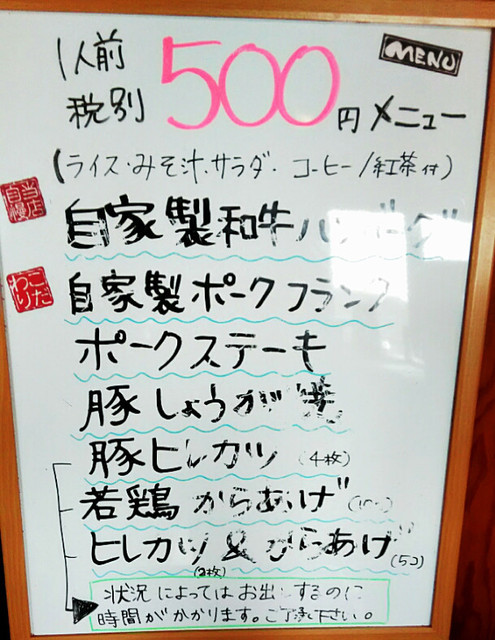 MENU
1人前
税別
500円メニュー
(ライス・みそ汁・サラダ・コーヒー/紅茶付)
当店自慢
自家製和牛ハンバーグ
こだわり
自家製ポークフランク
ポークステーキ
豚しょうが焼
豚ヒレカツ (4枚)
若鶏からあげ
ヒレカツ&からあげ
(2枚) (5コ)
状況によってはお出しするのに
時間がかかります。ご了承下さい。